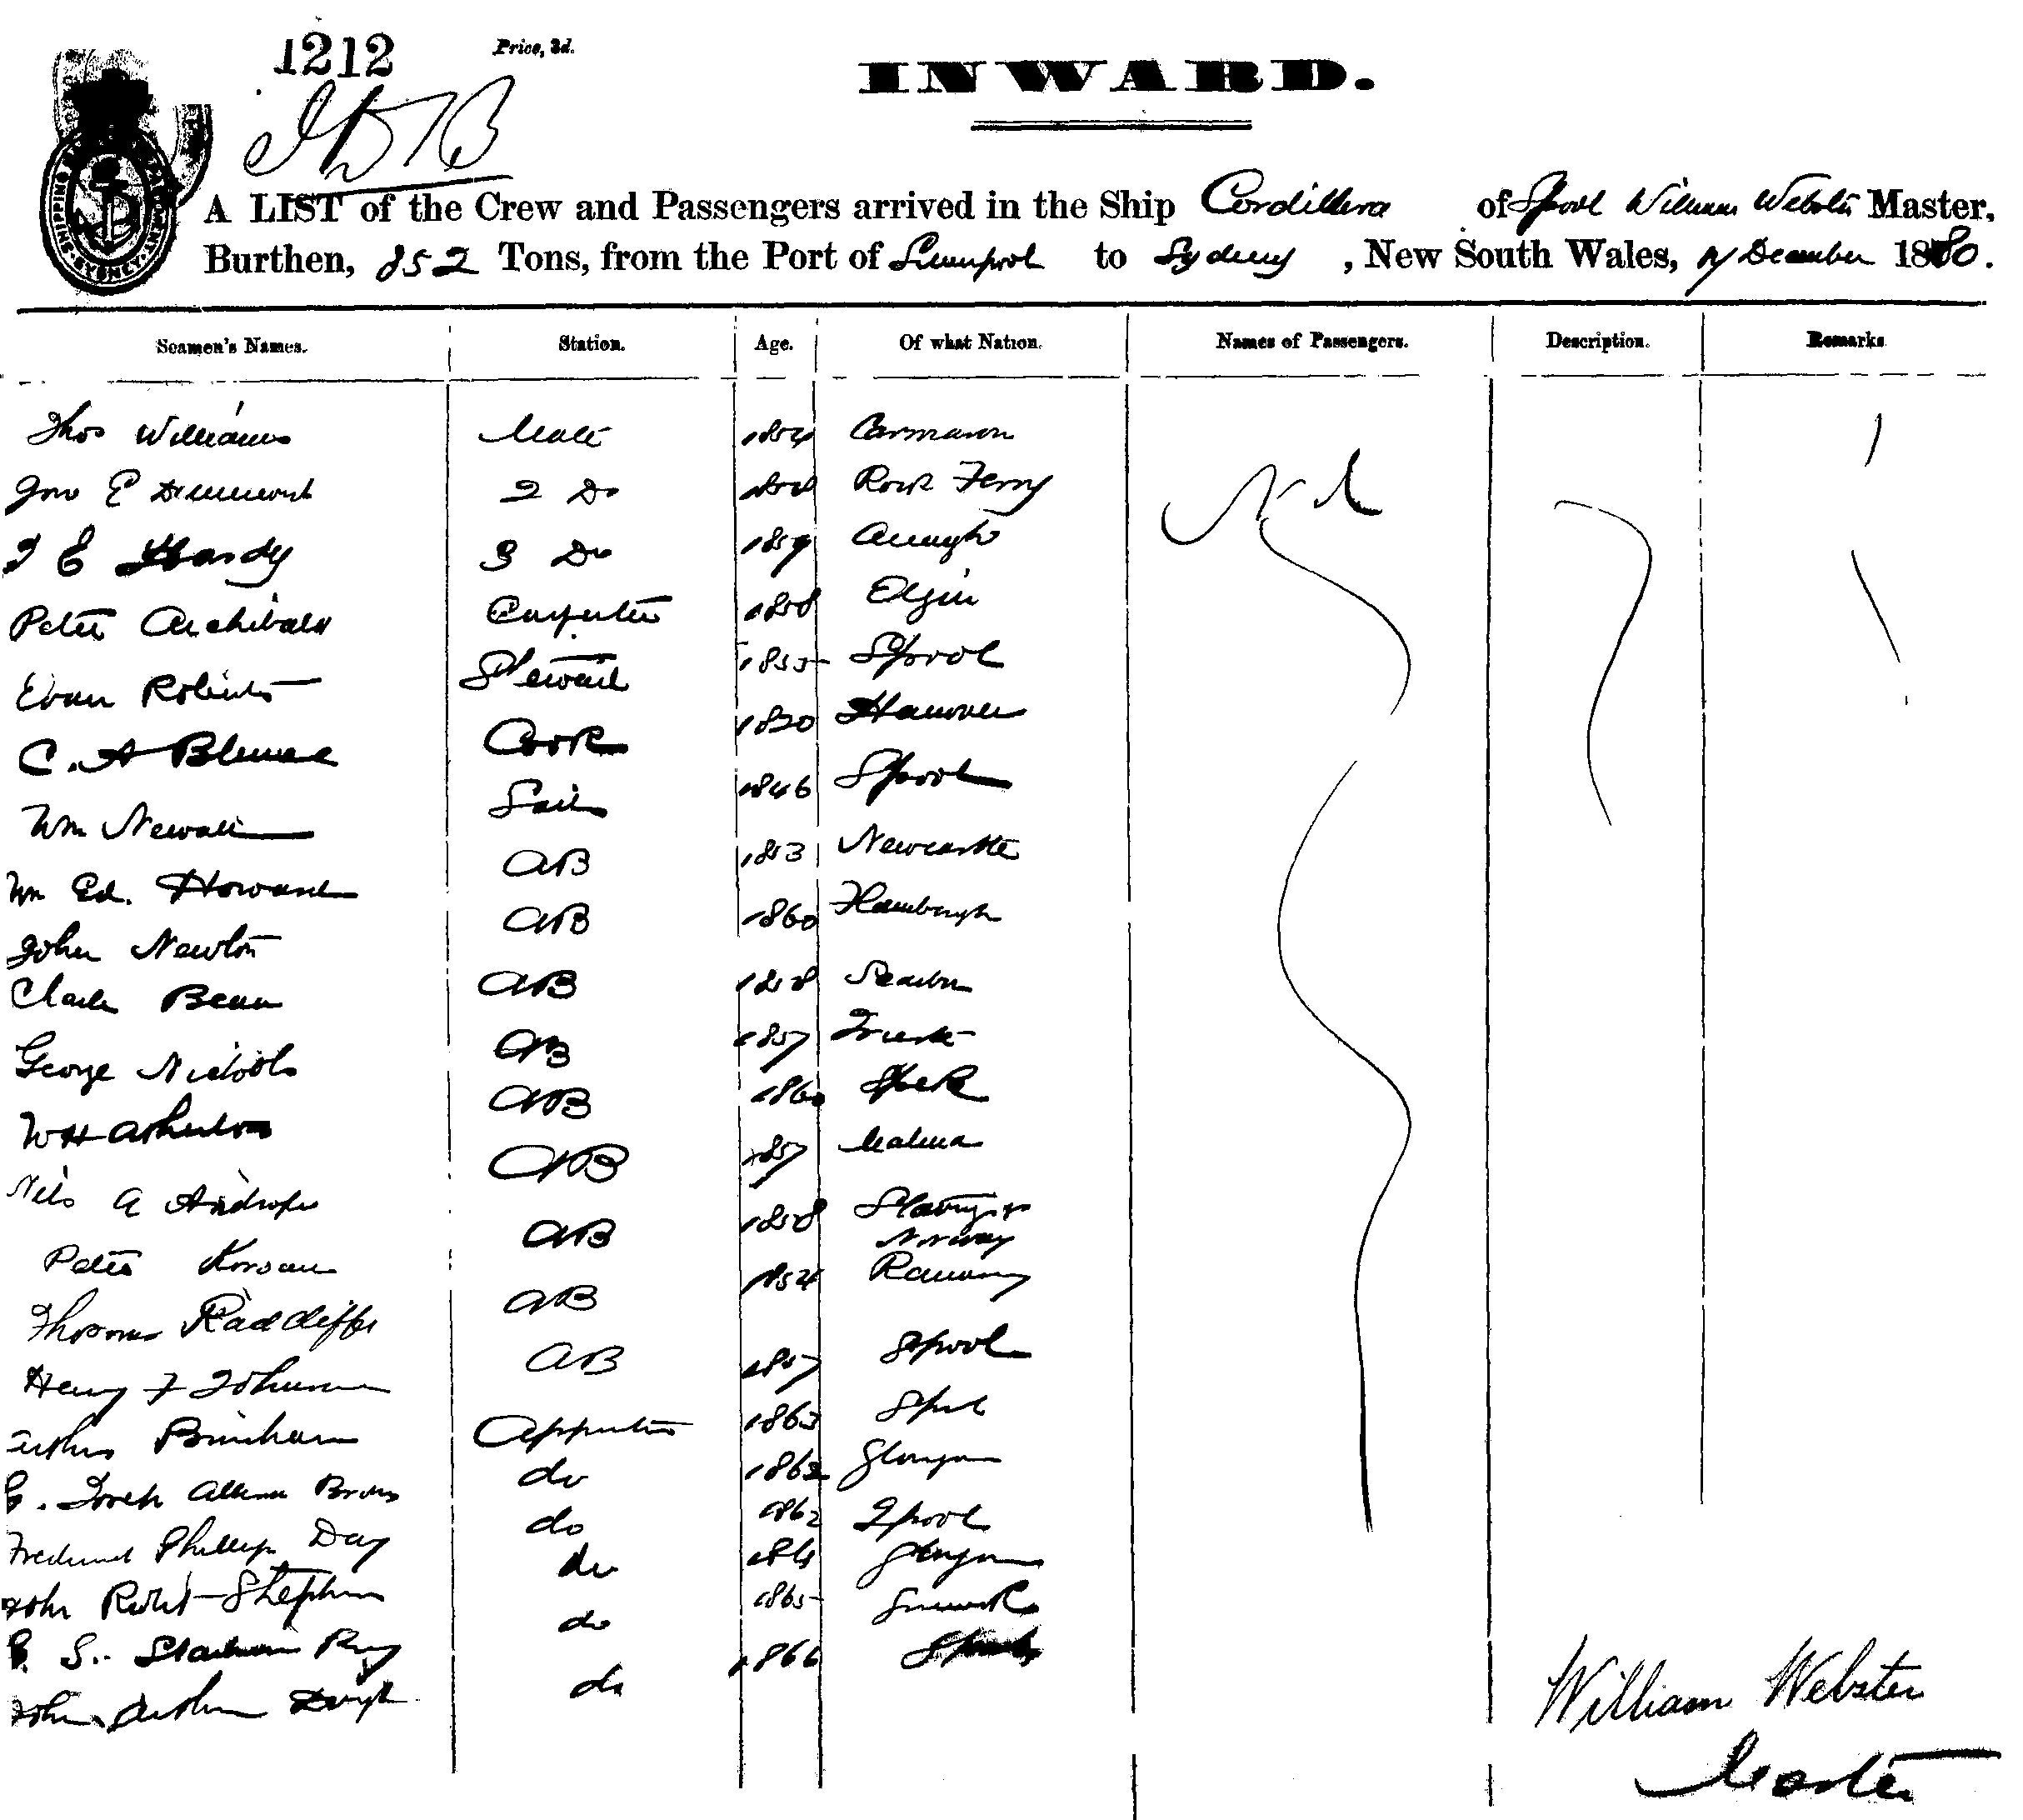 1212 Price, 3d.
INWARD.
SHIPPING SYDNEY
A LIST of the Crew and Passengers arrived in the Ship Cordillera of Lpool William Webster Master,
Burthen, 852 Tons, from the Port of Liverpool to Sydney, New South Wales, December 1880.
Seamen's Names. Station. Age. Of what Nation. Names of Passengers. Description. Remarks
Thos Williams Mate 1854 Carnarvon
Jno E 2 Do Rock Ferry Nil
T E Hardy 3 Do 1859
Peter Archibald Carpenter 1858 Elgin
Evan Roberts Steward 1855 Lpool
C. A Cook 1820 Hanover
Wm Newall Sails 1846 Lpool
Wm Ed. Howard AB 1853 Newcastle
John Newton AB 1860 Hamburgh
Bean AB 1858
George Nichols AB 1857 Trieste
W H Asherton AB 1860
Nils A AB 1857
Peter AB 1858 Stavanger Norway
Thomas Radcliffe AB 1854 Ramsey
Henry F Johnson AB 1857 Lpool
Arthur Apprentice 1863 Lpool
do 1862 Glasgow
Frederick Phillip Day do 1862 Lpool
John Robt Stephen do 1864 Glasgow
do 1865
John Arthur do 1866
William Webster
Master